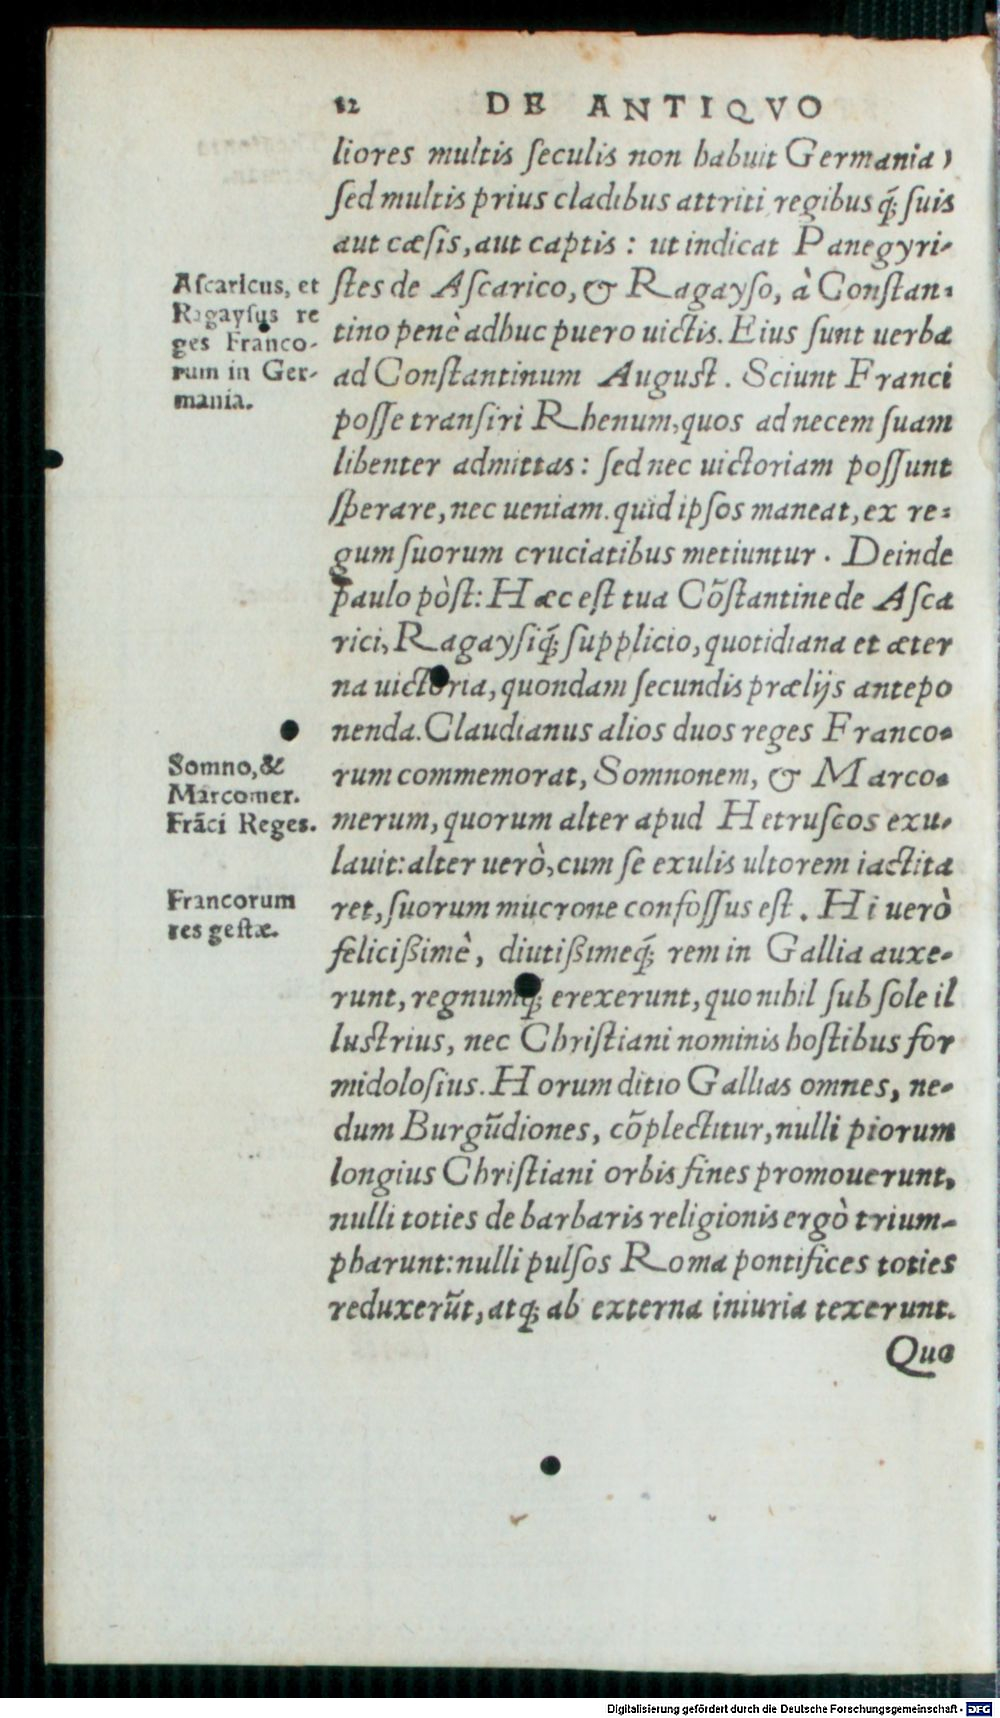 12 DE ANTIQVO
liores multis ſeculis non habuit Germania,
ſed multis prius cladibus attriti regibus q́; ſuis
aut cæſis, aut captis: ut indicat Panegyri-
ſtes de Aſcarico, & Ragayſo, à Conſtan-
tino penè adhuc puero uictis. Eius ſunt uerba
ad Conſtantinum Auguſt. Sciunt Franci
poſſe tranſiri Rhenum, quos ad necem ſuam
libenter admittas: ſed nec uictoriam poſſunt
ſperare, nec ueniam. quid ipſos maneat, ex re-
gum ſuorum cruciatibus metiuntur. Deinde
paulo pòſt: Hæc eſt tua Cõſtantine de Aſca
rici, Ragayſiq́; ſupplicio, quotidiana et æter
na uictoria, quondam ſecundis prælijs antepo
nenda. Claudianus alios duos reges Franco-
rum commemorat, Somnonem, & Marco-
merum, quorum alter apud Hetruſcos exu-
lauit: alter uerò, cum ſe exulis ultorem iactita
ret, ſuorum mucrone confoſſus eſt. Hi uerò
feliciſsimè, diutiſsimeq́; rem in Gallia auxe-
runt, regnumq́; erexerunt, quo nihil ſub ſole il
luſtrius, nec Chriſtiani nominis hoſtibus for
midoloſius. Horum ditio Gallias omnes, ne-
dum Burgũdiones, cõplectitur, nulli piorum
longius Chriſtiani orbis fines promouerunt,
nulli toties de barbaris religionis ergò trium-
pharunt: nulli pulſos Roma pontifices toties
reduxerũt, atq; ab externa iniuria texerunt.
Quo
Aſcaricus, et
Ragayſus re
ges Franco-
rum in Ger-
mania.
Somno, &
Marcomer.
Frãci Reges.
Francorum
res geſtæ.
Digitalisierung gefördert durch die Deutsche Forschungsgemeinschaft - DFG